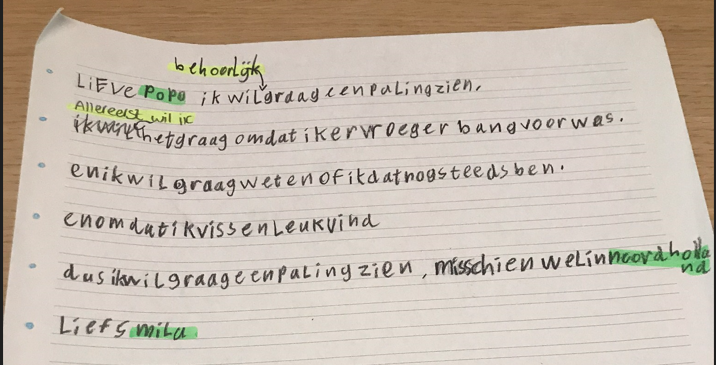 behoorlijk
LiEVe PaPa ikwilgraageenpalingzien.
Allereerst wil ik
ikwil hetgraagomdatikervroegerbangvoorwas.
enikwilgraagwetenofikdatnogsteedsben.
enomdatikvissenLeukvind
dusikwilgraageenpalingzien, misschienweLinnoordholla
nd
Liefs miLa